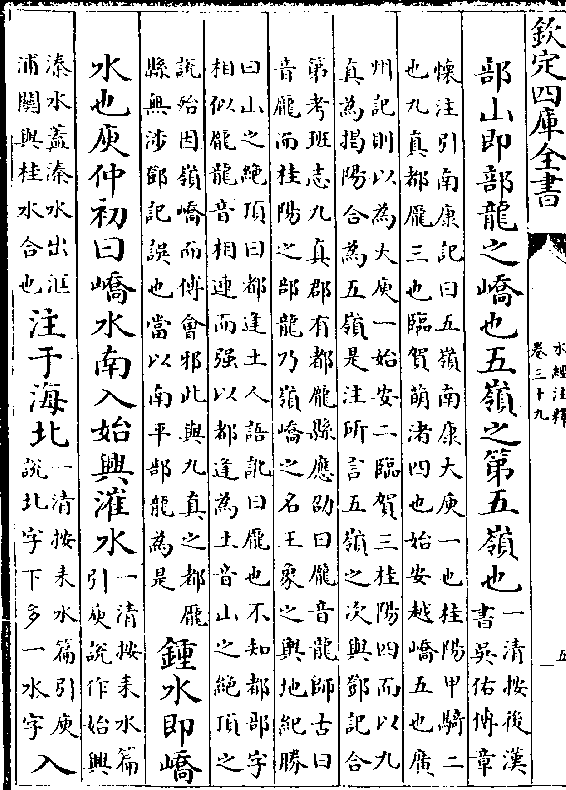 欽定四庫全書
水經注釋
卷三十九
五
部山即部龍之嶠也五嶺之第五嶺也
一清按後漢
書吳佑傳章
懷注引南康記曰五嶺南康大庾一也桂陽甲騎二
也九真都龐三也臨賀萌渚四也始安越嶠五也廣
州記則以為大庾一始安二臨賀三桂陽四而以九
真為揭陽合為五嶺是注所言五嶺之次與鄧記合
第考班志九真郡有都龐縣應劭曰龐音龍師古曰
音龐而桂陽之部龍乃嶺嶠之名王象之輿地紀勝
曰山之絶頂曰都逢土人語訛曰龐也不知都部字
相似龐龍音相連而强以都逢為土音山之絶頂之
説始因嶺嶠而傅會邪此與九真之都龐
縣無涉鄧記誤也當以南平部龍為是
鍾水即嶠
水也庾仲初曰嶠水南入始興漼水
一清按耒水篇
引庾説作始興
溱水蓋溱水出洭
浦關與桂水合也
注于海北
一清按耒水篇引庾
説北字下多一水字
入